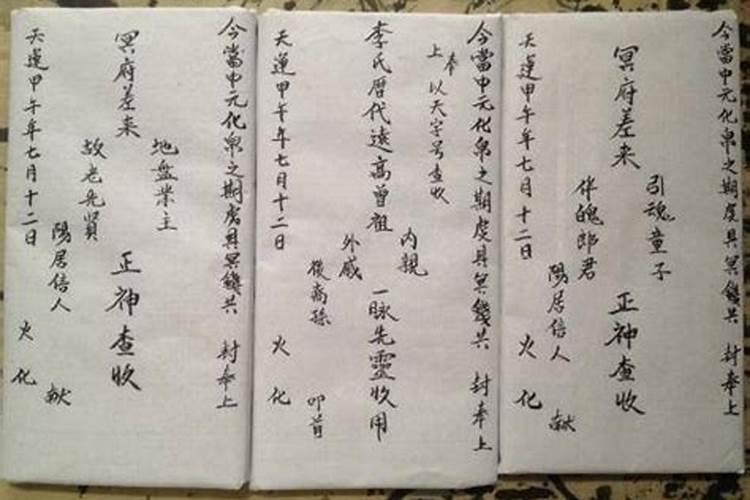 今當中元化帛之期虔具冥錢共 封奉上
冥府差来
引魂童子
伴魄郎君
正神查收
陽居信人 献
天運甲午年七月十二日 火化
今當中元化帛之期虔具冥錢共 封奉上
奉上以天字号查收
李氏暦代遠高曾祖
内親
外戚
一脉先靈收用
後裔孫 叩首
天運甲午年七月十二日 火化
今當中元化帛之期虔具冥錢共 封奉上
冥府差来
地盤業主
故老先賢
正神查收
陽居信人 献
天運甲午年七月十二日 火化